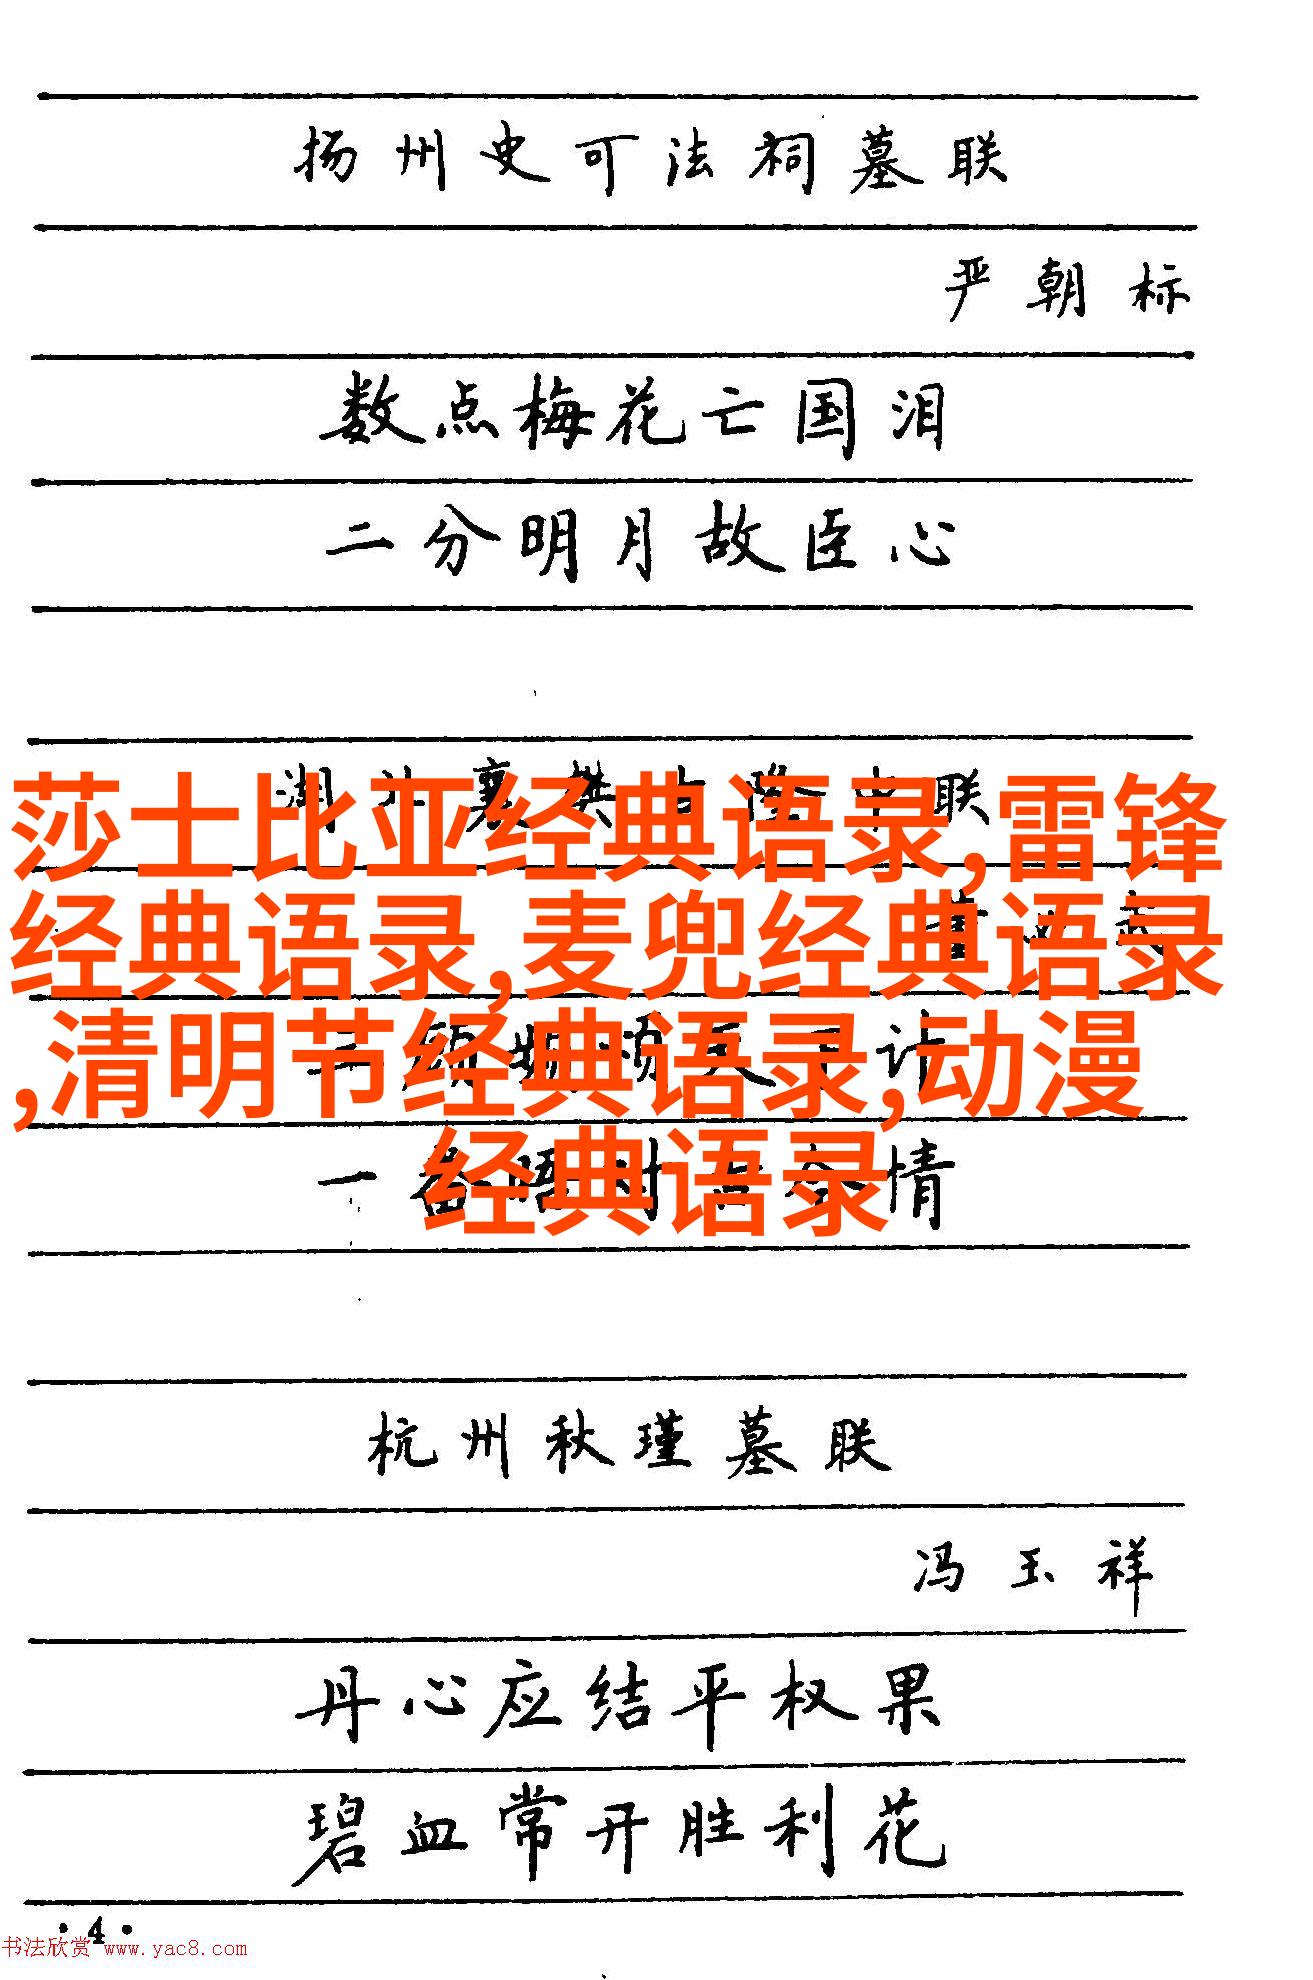 扬州史可法祠墓联
严朝标
数点梅花亡国泪
二分明月故臣心
莎士比亚经典语录,雷锋
经典语录,麦兜经典语录
,清明节经典语录,动漫
经典语录
联
计
一
情
杭州秋瑾墓联
冯玉祥
丹心应结平权果
碧血常开胜利花
·4·
书法欣赏 www.yac8.com